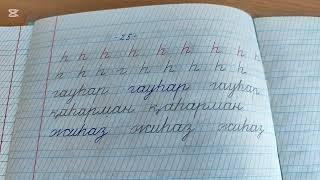 -25-
һ һ һ һ һ һ һ һ һ
һ һ һ һ һ һ һ һ һ
гауһар гауһар гауһар
қаһарман қаһарман
жиһаз жиһаз жиһаз